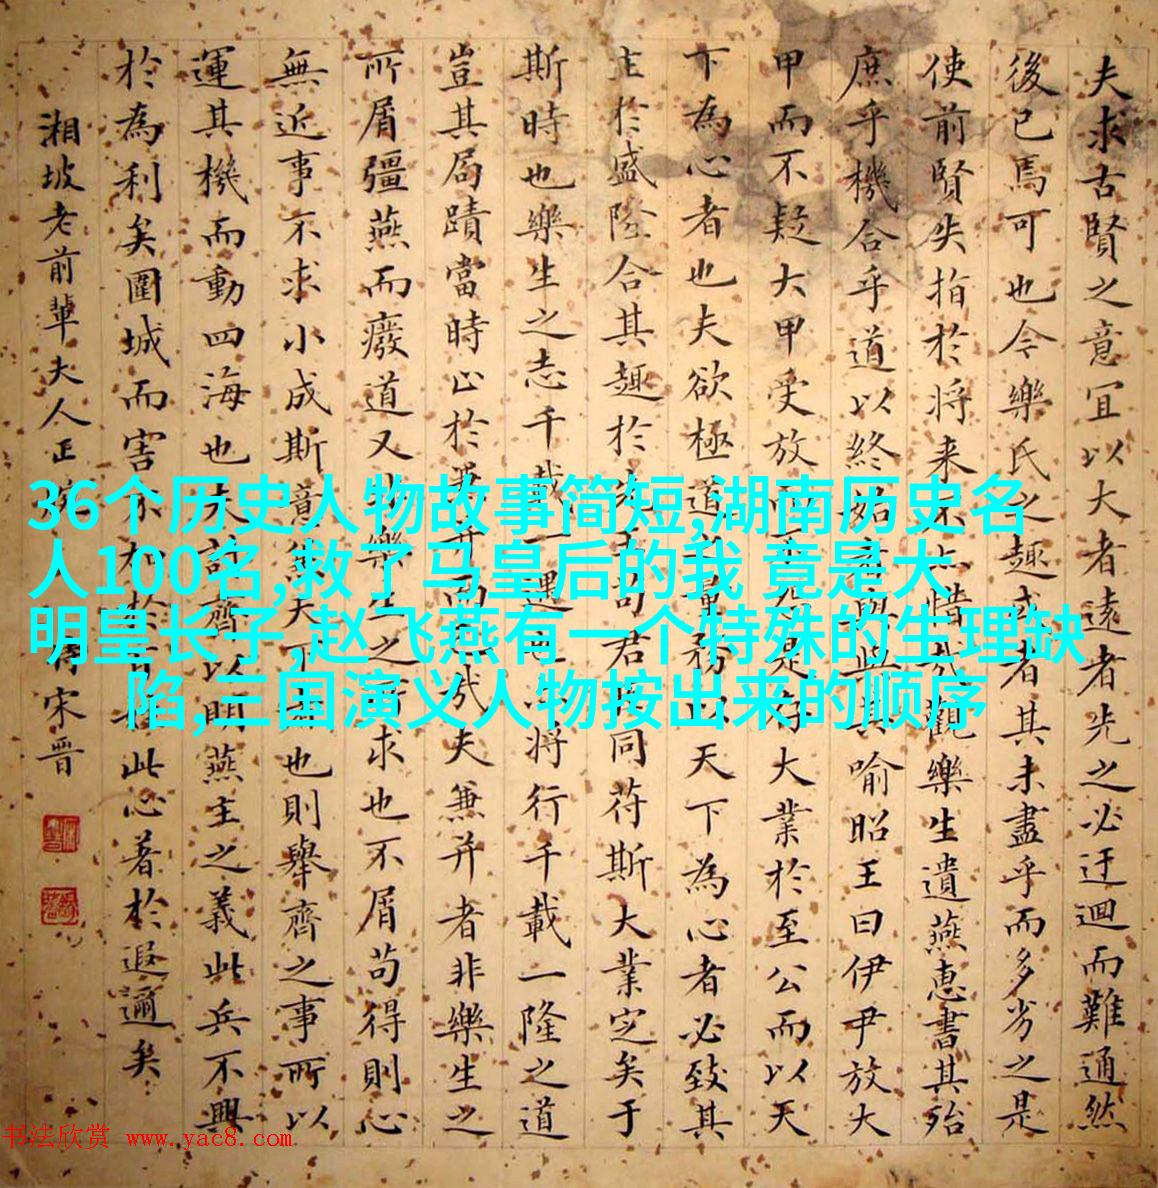 夫求古賢之意宜以大者遠者先之必迂迴而難通然
後已焉可也今樂氏之趣或者其未盡乎而多劣之是
使前賢失指於将来不亦惜哉觀樂生遺燕惠書其殆
庶乎機合乎道以終始者與其喻昭王曰伊尹放大
甲而不疑大甲受放而不怨是存大業於至公而以天
下為心者也夫欲極道之量務以天下為心者必致其
主於盛隆合其趣於先王苟君臣同苻斯大業定矣于
斯時也樂生之志千載一遇也亦将行千載一隆之道
豈其局蹟當時止於兼并而已哉夫兼并者非樂生之
所屑彊燕而廢道又非樂生之所求也不屑苟得則心
無近事不求小成斯意兼天下者也則舉齊之事所以
運其機而動四海也夫討齊以明燕主之義此兵不興
於為利矣圍城而害不加於百姓此心著於遐邇矣
湘坡老前輩夫人正 宋晋
36个历史人物故事简短,湖南历史名
人100名,救了马皇后的我 竟是大
明皇长子,赵飞燕有一个特殊的生理缺
陷,三国演义人物按出来的顺序
书法欣赏 www.yac8.com